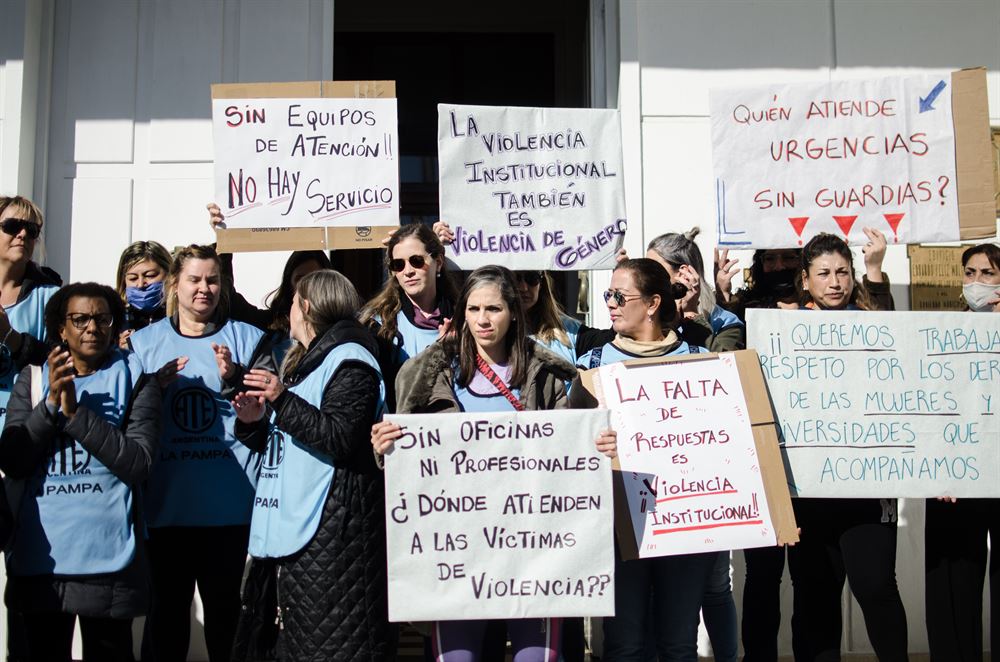 SIN EQUIPOS
DE ATENCIÓN!!
NO HAY SERVICIO
LA VIOLENCIA
INSTITUCIONAL
TAMBIÉN
ES
VIOLENCIA DE GÉNERO
QUIÉN ATIENDE
URGENCIAS
SIN GUARDIAS?
SIN OFICINAS
NI PROFESIONALES
¿DÓNDE ATIENDEN
A LAS VÍCTIMAS
DE VIOLENCIA??
LA FALTA
DE
RESPUESTAS
ES
VIOLENCIA
¡¡INSTITUCIONAL!!
¡¡QUEREMOS TRABAJA
RESPETO POR LOS DER
DE LAS MUJERES Y
DIVERSIDADES QUE
ACOMPAÑAMOS
ATE
LA PAMPA
ATE
ARGENTINA
LA PAMPA
ATE
LA PAMPA